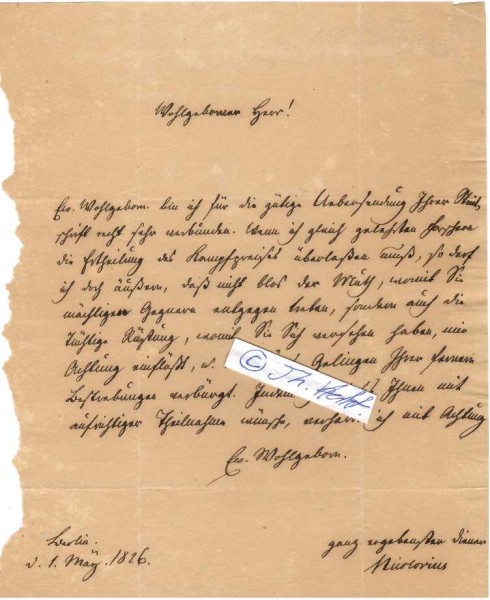 Wohlgeborner Herr!
Ew. Wohlgeborn. bin ich für die gütige Uebersendung Ihrer
schrift recht sehr verbunden. Wenn ich gleich gelehrten Forschern
die Ertheilung des Kampfpreises überlaßen muß, so darf
ich doch äußern, daß nicht blos der Muth, womit Sie
mächtigen Gegnern entgegen treten, sondern auch die
tüchtige Rüstung, womit Sie Sich versehen haben, mir
Achtung einflößt, u. Gelingen Ihrer fernern
Bestrebungen verbürgt. Indem Ihnen mit
aufrichtiger Theilnahme wünsche, verharre ich mit Achtung
© Th.
Ew. Wohlgeborn.
Berlin.
d. 1. May. 1826.
ganz ergebenster Diener
Nicolovius